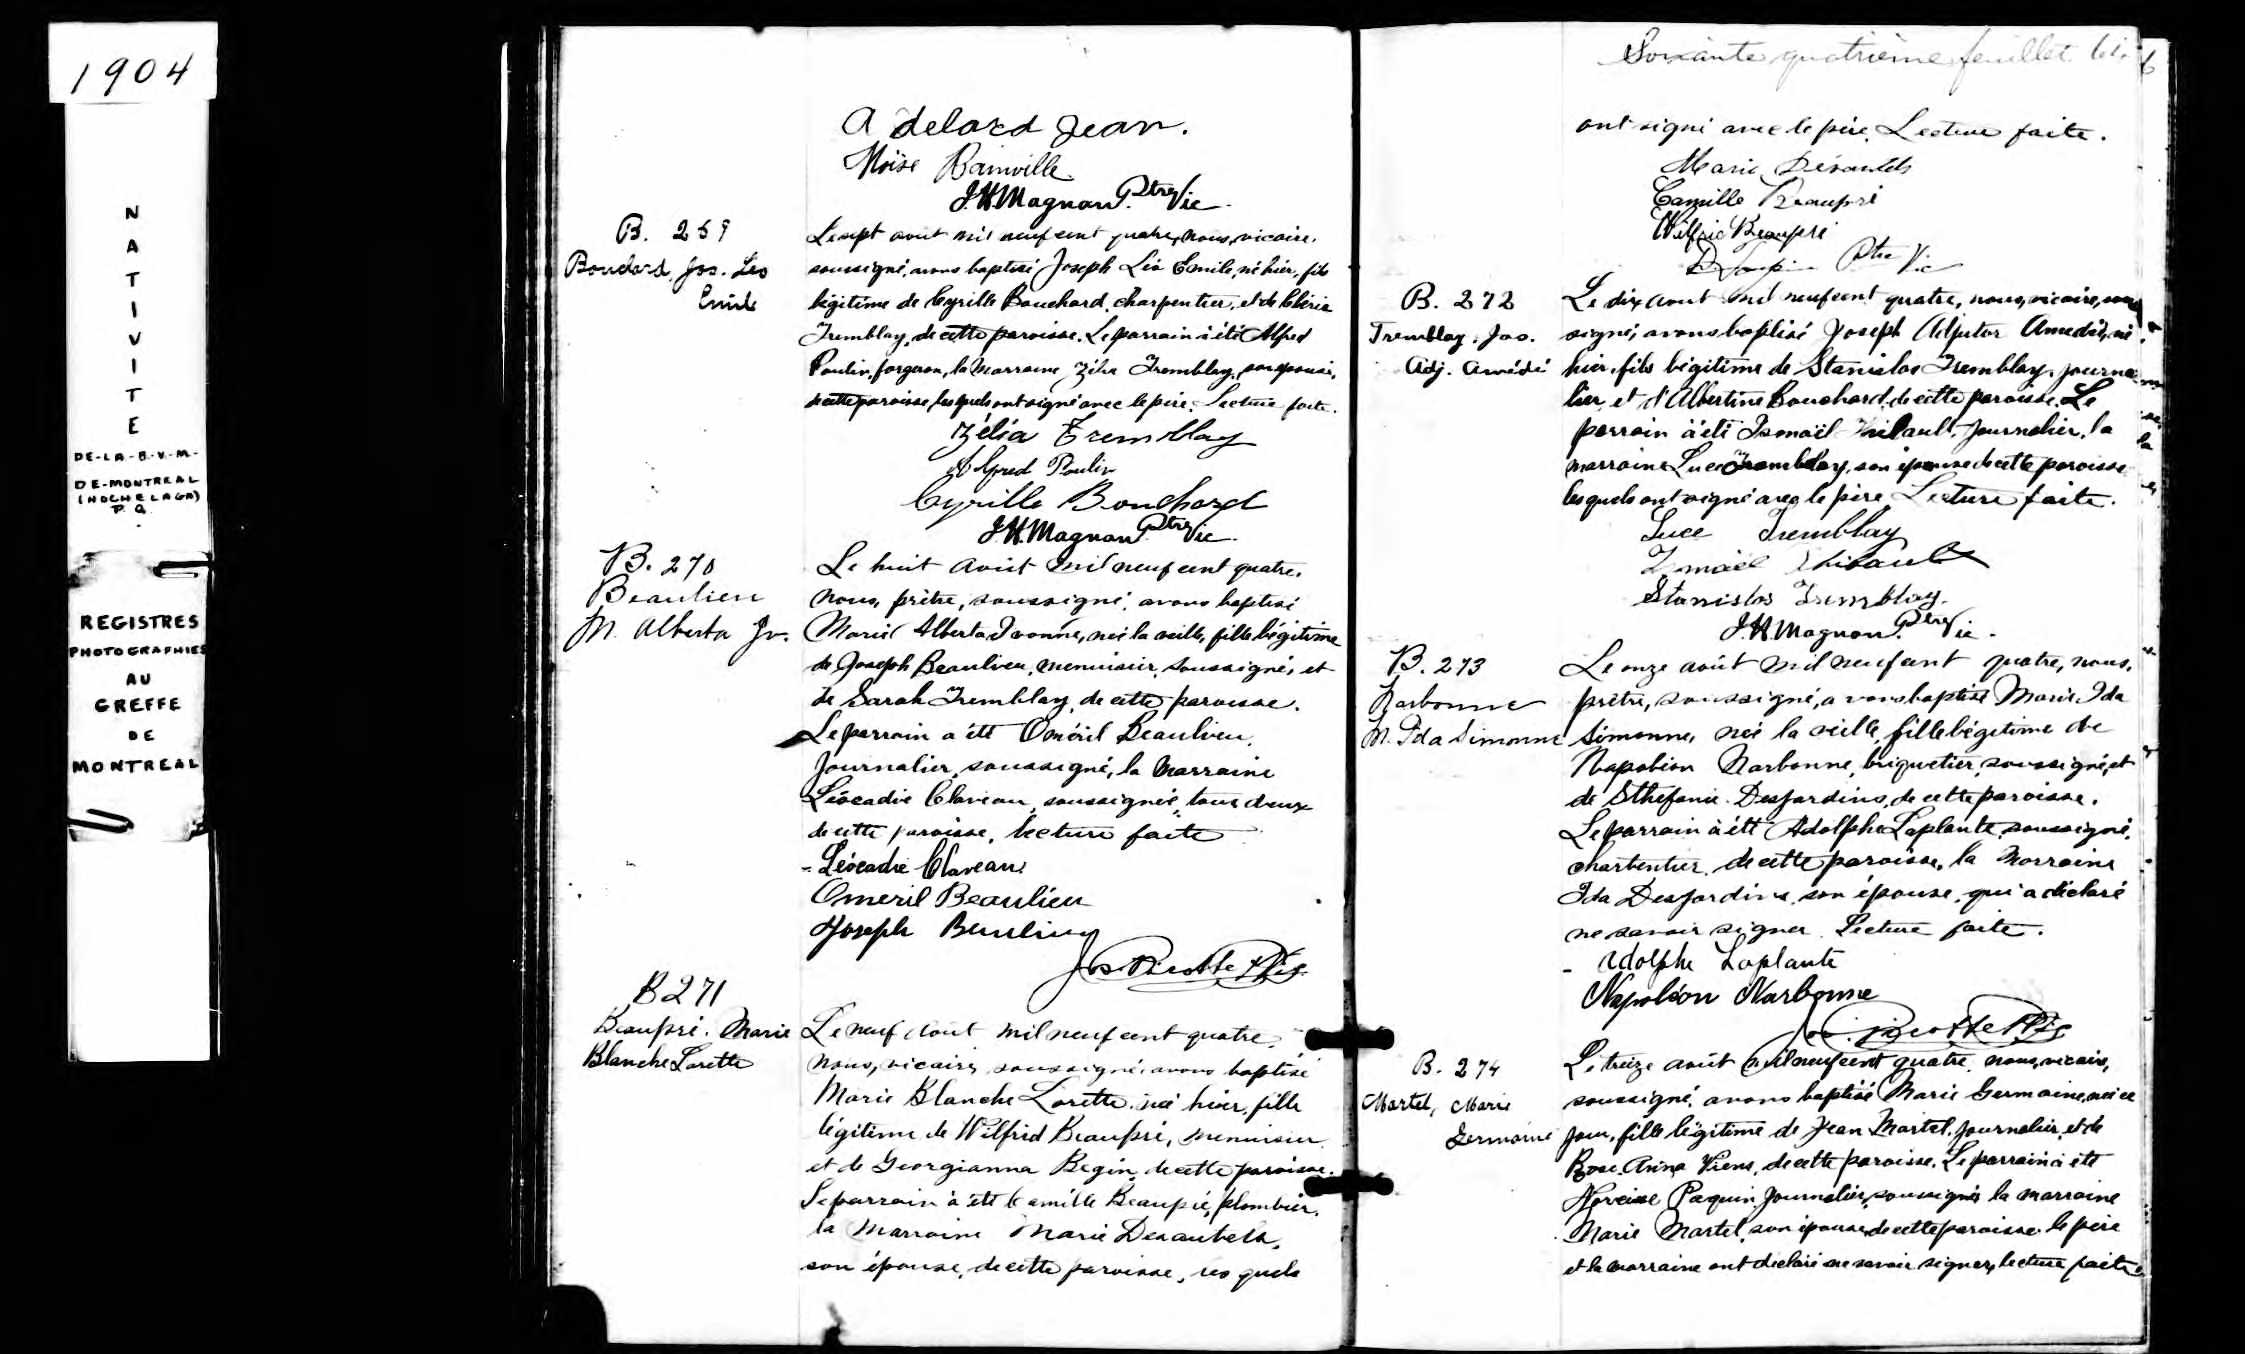 1904
NATIVITE
DE-LA-B-V-M-
DE-MONTREAL
(HOCHELAGA)
P.Q.
REGISTRES
PHOTOGRAPHIES
AU
GREFFE
DE
MONTREAL
Adelard Jean.
Moïse Bainville.
J.H. Magnan Ptre Vic.
B. 269
Bouchard, Jos. Léo
Emile
Le sept août mil neuf cent quatre, nous, vicaire,
soussigné, avons baptisé Joseph Léo Emile, né hier, fils
légitime de Cyrille Bouchard, charpentier, et de
Tremblay, de cette paroisse. Le parrain a été Alfred
Poulin, forgeron, la marraine Zélia Tremblay, son épouse,
de cette paroisse, lesquels ont signé avec le père. Lecture faite.
Zélia Tremblay
Alfred Poulin
Cyrille Bouchard
J.H. Magnan Ptre Vic.
B. 270
Beaulieu
M. Alberta Yv.
Le huit août mil neuf cent quatre,
nous, prêtre, soussigné, avons baptisé
Marie Alberta Ivonne, née la veille, fille légitime
de Joseph Beaulieu, menuisier, soussigné, et
de Sarah Tremblay, de cette paroisse.
Le parrain a été Oméril Beaulieu,
journalier, soussigné, la marraine
Léocadie Claveau, soussignée, tous deux
de cette paroisse, lecture faite
- Léocadie Claveau
Omeril Beaulieu
Joseph Beaulieu
B 271
Beaupré. Marie
Blanche Lorette
Le neuf août mil neuf cent quatre,
nous, vicaire, soussigné, avons baptisé
Marie Blanche Lorette, née hier, fille
légitime de Wilfrid Beaupré, menuisier
et de Georgianna Begin, de cette paroisse.
Le parrain a été Camille Beaupré, plombier,
la marraine Marie Desautels,
son épouse, de cette paroisse, lesquels
Soixante quatrième feuillet 64.
ont signé avec le père. Lecture faite.
Marie Désautels
Camille Beaupré
Wilfrid Beaupré
Ptre Vic
B. 272
Tremblay, Jos.
Adj. Amédé
Le dix août mil neuf cent quatre, nous, vicaire, sous
signé, avons baptisé Joseph Adjutor Amédé, né
hier, fils légitime de Stanislas Tremblay, journa
lier, et d'Albertine Bouchard, de cette paroisse. Le
parrain a été Ismaël Thibault, journalier, la
marraine Luce Tremblay, son épouse de cette paroisse
lesquels ont signé avec le père. Lecture faite.
Luce Tremblay
Ismaël Thibault
Stanislas Tremblay.
J.H. Magnan Ptre Vic.
B. 273
Narbonne
M. Ida Simonne
Le onze août mil neuf cent quatre, nous,
prêtre, soussigné, avons baptisé Marie Ida
Simonne, née la veille, fille légitime de
Napoléon Narbonne, briquetier, soussigné, et
de Sthéfanie Desjardins, de cette paroisse.
Le parrain a été Adolphe Laplante, soussigné,
charpentier, de cette paroisse, la marraine
Ida Desjardins, son épouse, qui a déclaré
ne savoir signer. Lecture faite.
- Adolphe Laplante
Napoléon Narbonne
B. 274
Martel, Marie
Germaine
Le treize août mil neuf cent quatre, nous, vicaire,
soussigné, avons baptisé Marie Germaine, née ce
jour, fille légitime de Jean Martel, journalier, et de
Rose Anna Viens, de cette paroisse. Le parrain a été
Paquin, journalier, soussigné, la marraine
Marie Martel, son épouse, de cette paroisse. Le père
et la marraine ont déclaré ne savoir signer, lecture faite.